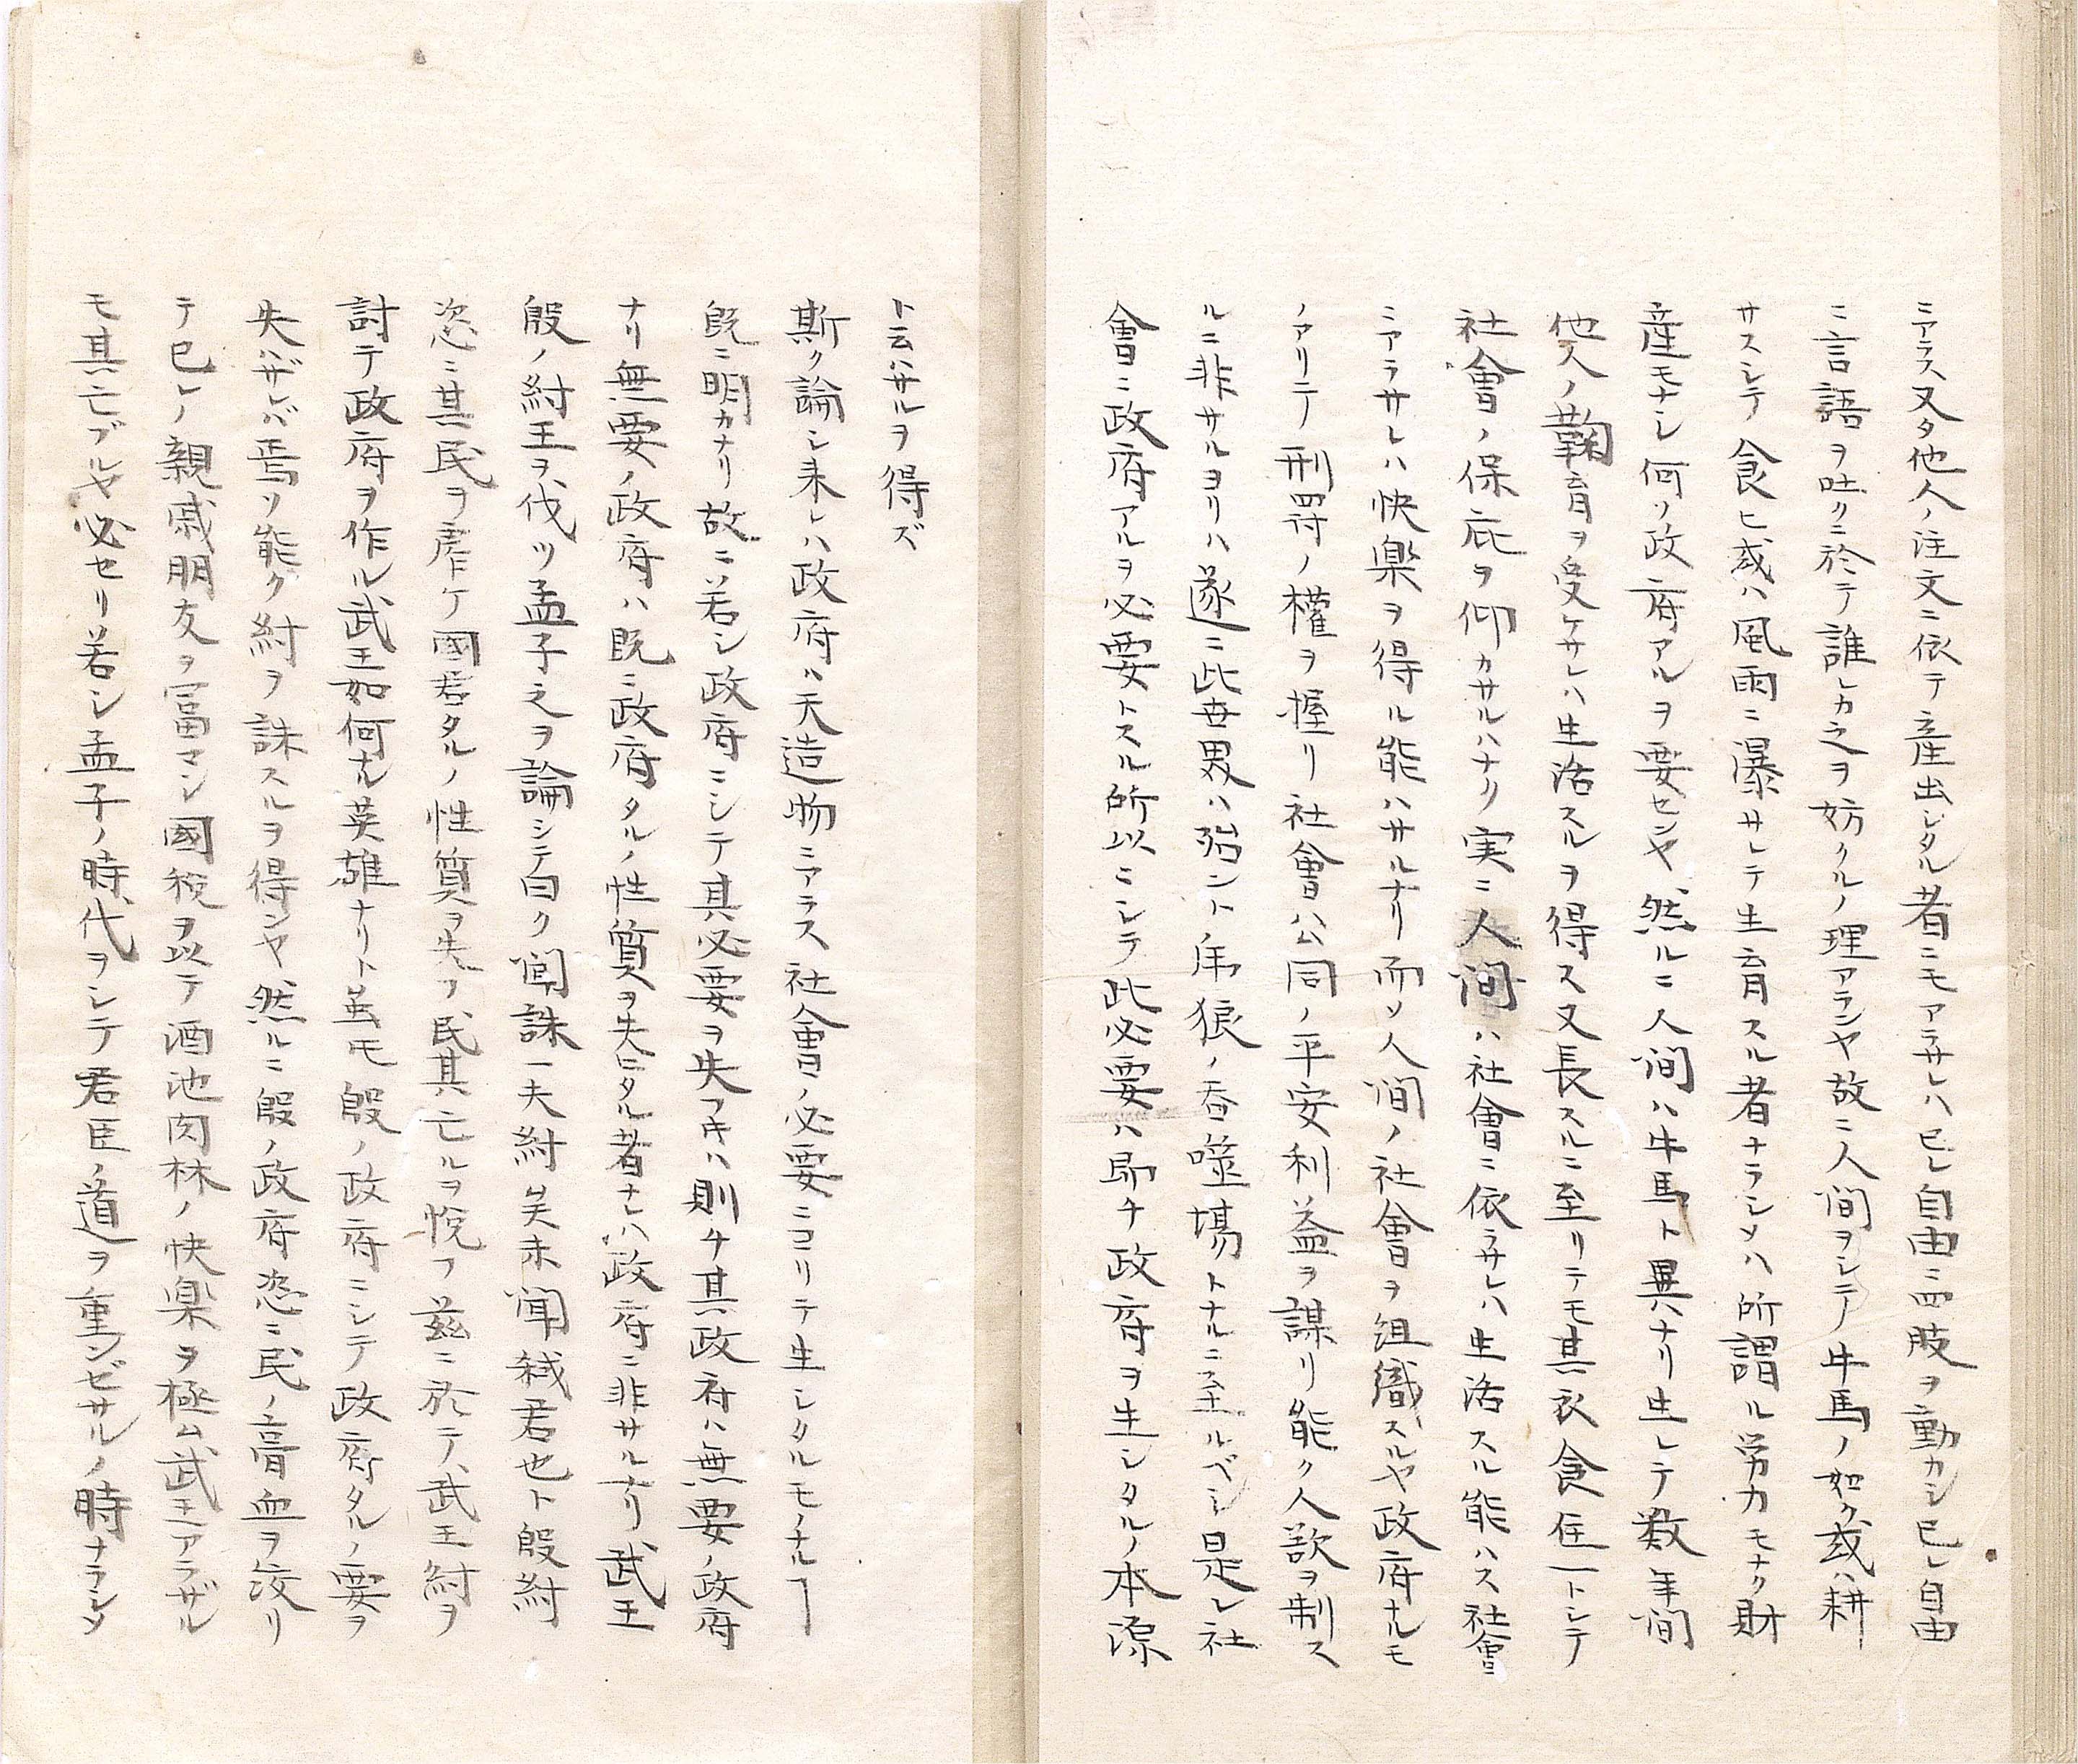 ニアラス又タ他人ノ注文ニ依テ産出シタル者ニモアラサレハ已レ自由ニ四肢ヲ動カシ已レ自由
ニ言語ヲ吐クニ於テ誰レカ之ヲ妨クルノ理アランヤ故ニ人間ヲシテ牛馬ノ如ク或ハ耕
サスシテ食ヒ或ハ風雨ニ瀑サレテ生育スル者ナラシメハ所謂ル労力モナク財
産モナシ何ソ政府アルヲ要センヤ然ルニ人間ハ牛馬ト異ハナリ生レテ数年間
他人ノ鞠育ヲ受ケサレハ生活スルヲ得ス又長スルニ至リテモ其衣食住一トシテ
社會ノ保庇ヲ仰カサルハナク実ニ人間ハ社會ニ依ラサレハ生活スル能ハス社會
ニアラサレハ快楽ヲ得ル能ハサルナリ而ソ人間ノ社會ヲ組織スルヤ政府ナルモ
ノアリテ刑罸ノ權ヲ握リ社會公同ノ平安利益ヲ謀リ能ク人欲ヲ制ス
ルニ非サルヨリハ遂ニ此世界ハ殆ント乕狼ノ吞噬場トナルニ至ルベシ是レ社
會ニ政府アルヲ必要トスル所以ニシテ此必要ハ即チ政府ヲ生シタルノ本源
ト云ハサルヲ得ズ
斯ク論シ来レハ政府ハ天造物ニアラス社會ノ必要ニヨリテ生シタルモノナルヿ
既ニ明カナリ故ニ若シ政府ニシテ其必要ヲ失フキハ則チ其政府ハ無要ノ政府
ナリ無要ノ政府ハ既ニ政府タルノ性質ヲ失ヒタル者ナレハ政府ニ非サルナリ武王
殷ノ紂王ヲ伐ツ孟子之ヲ論シテ曰ク聞誅一夫紂矣未聞弑君也ト殷紂
恣ニ其民ヲ虐ケ國君タルノ性質ヲ失フ民其亡ルヲ悦フ茲ニ於テ武王紂ヲ
討テ政府ヲ作ル武王如何ナル英雄ナリト虽モ殷ノ政府ニシテ政府タルノ要ヲ
失ハザレバ焉ソ能ク紂ヲ誅スルヲ得ンヤ然ルニ殷ノ政府恣ニ民ノ膏血ヲ絞リ
テ已レノ親戚朋友ヲ富マシ國税ヲ以テ酒池肉林ノ快楽ヲ極ム武王アラザル
モ其亡ブルヤ必セリ若シ孟子ノ時代ヲシテ君臣ノ道ヲ重ンゼサルノ時ナラシメ